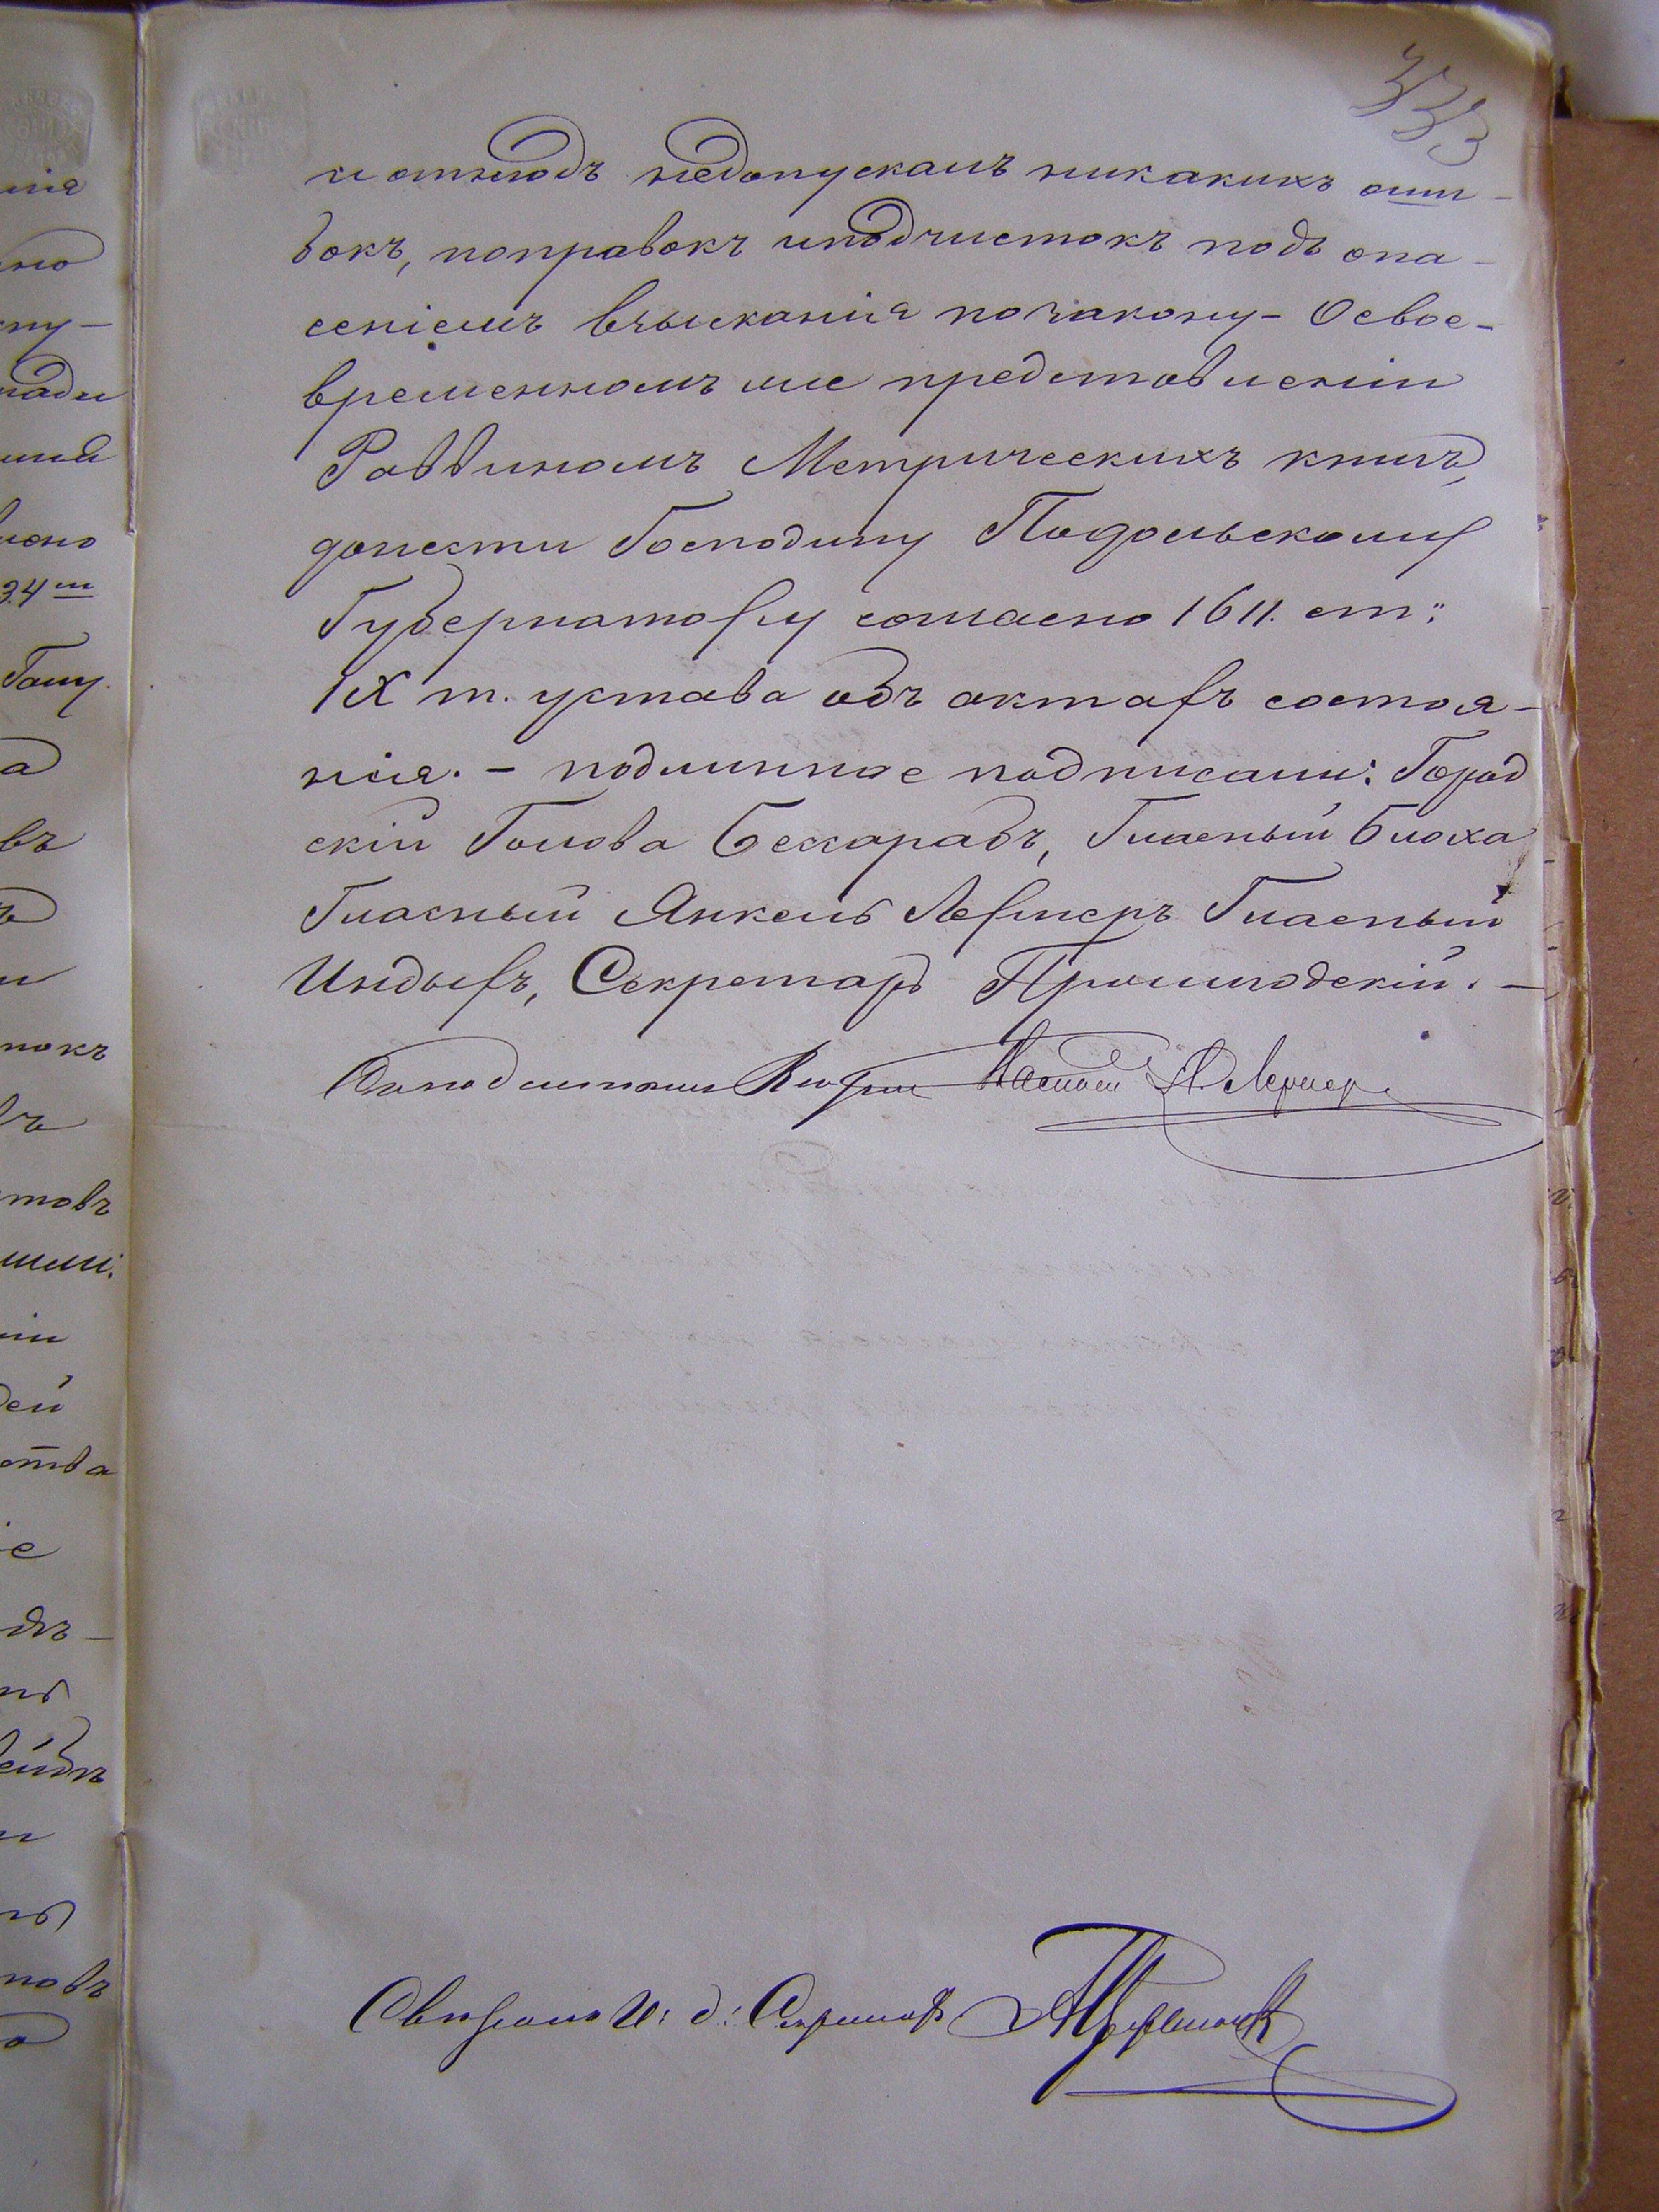 333
и отнюдъ недопускалъ никакихъ оши-
бокъ, поправокъ иподчистокъ подъ опа-
сеніемъ взысканія позакону - Освое-
временномъ же представленіи
Раввиномъ Метрическихъ книгъ,
донести Господину Подольскому
Губернатору согласно 1611. ст:
IX т. устава объ актахъ состоя-
нія. - подлинное подписали: Город
скій Голова Бессарабъ, Гласный Блоха
Гласный Янкель Лернеръ Гласный
Индыкъ, Секретарь
Гласный Я. Лернеръ
Свѣрялъ И: д: Секретаря
нія
но
пу-
34ш
а
въ
и
токъ
товъ
іи
дей
ства
іе
дъ-
новъ